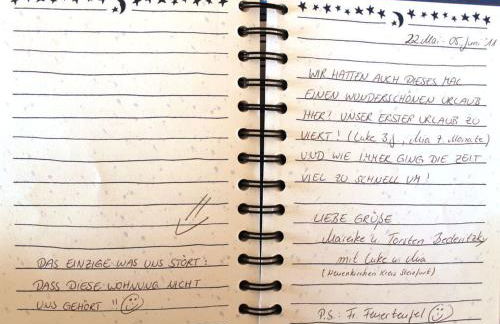 DAS EINZIGE WAS UNS STÖRT:
DASS DIESE WOHNUNG NICHT
UNS GEHÖRT !!
22 Mai - 05. Juni '11
WIR HATTEN AUCH DIESES MAL
EINEN WUNDERSCHÖNEN URLAUB
HIER! UNSER ERSTER URLAUB ZU
VIERT! (Luke 3 J., Mia 7 Monate)
UND WIE IMMER GING DIE ZEIT
VIEL ZU SCHNELL UM!
LIEBE GRÜßE
Mareike u. Torsten
mit Luke u. Mia
(Neuenkirchen Kreis Steinfurt)
P.S.: Fr. Feuerteufel